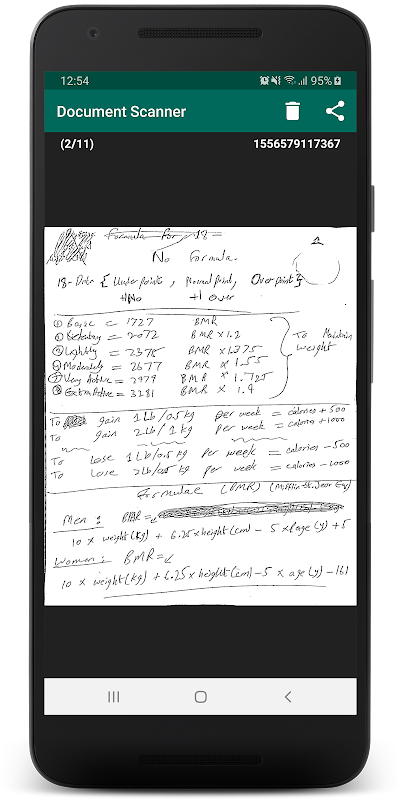 12:54 95%
Document Scanner
(2/11) 1556579117367
Formula for 18=
No Formula.
18- Data { Under points, Normal point, Over point }
+No +1 over
① Basic = 1727 BMR
② Sedentary = 2072 BMR x 1.2
③ Lightly = 2375 BMR x 1.375
Moderately = 2677 BMR x 1.55
Very Active = 2979 BMR x 1.725
Extra Active = 3281 BMR x 1.9
To Maintain
weight
To gain 1 Lb/0.5 kg per week = calories + 500
To gain 2Lb/1 kg per week = calories +1000
To Lose 1Lb/0.5 kg per week = calories - 500
To Lose 2Lb/0.5 kg per week = calories - 1000
Formulae (BMR) (Mifflin St. Jeor Eq)
Men: BMR=
10 x weight(kg) + 6.25 x height(cm) - 5 x age(y) + 5
Women: BMR=
10 x weight(kg) + 6.25 x height(cm) - 5 x age(y) - 161